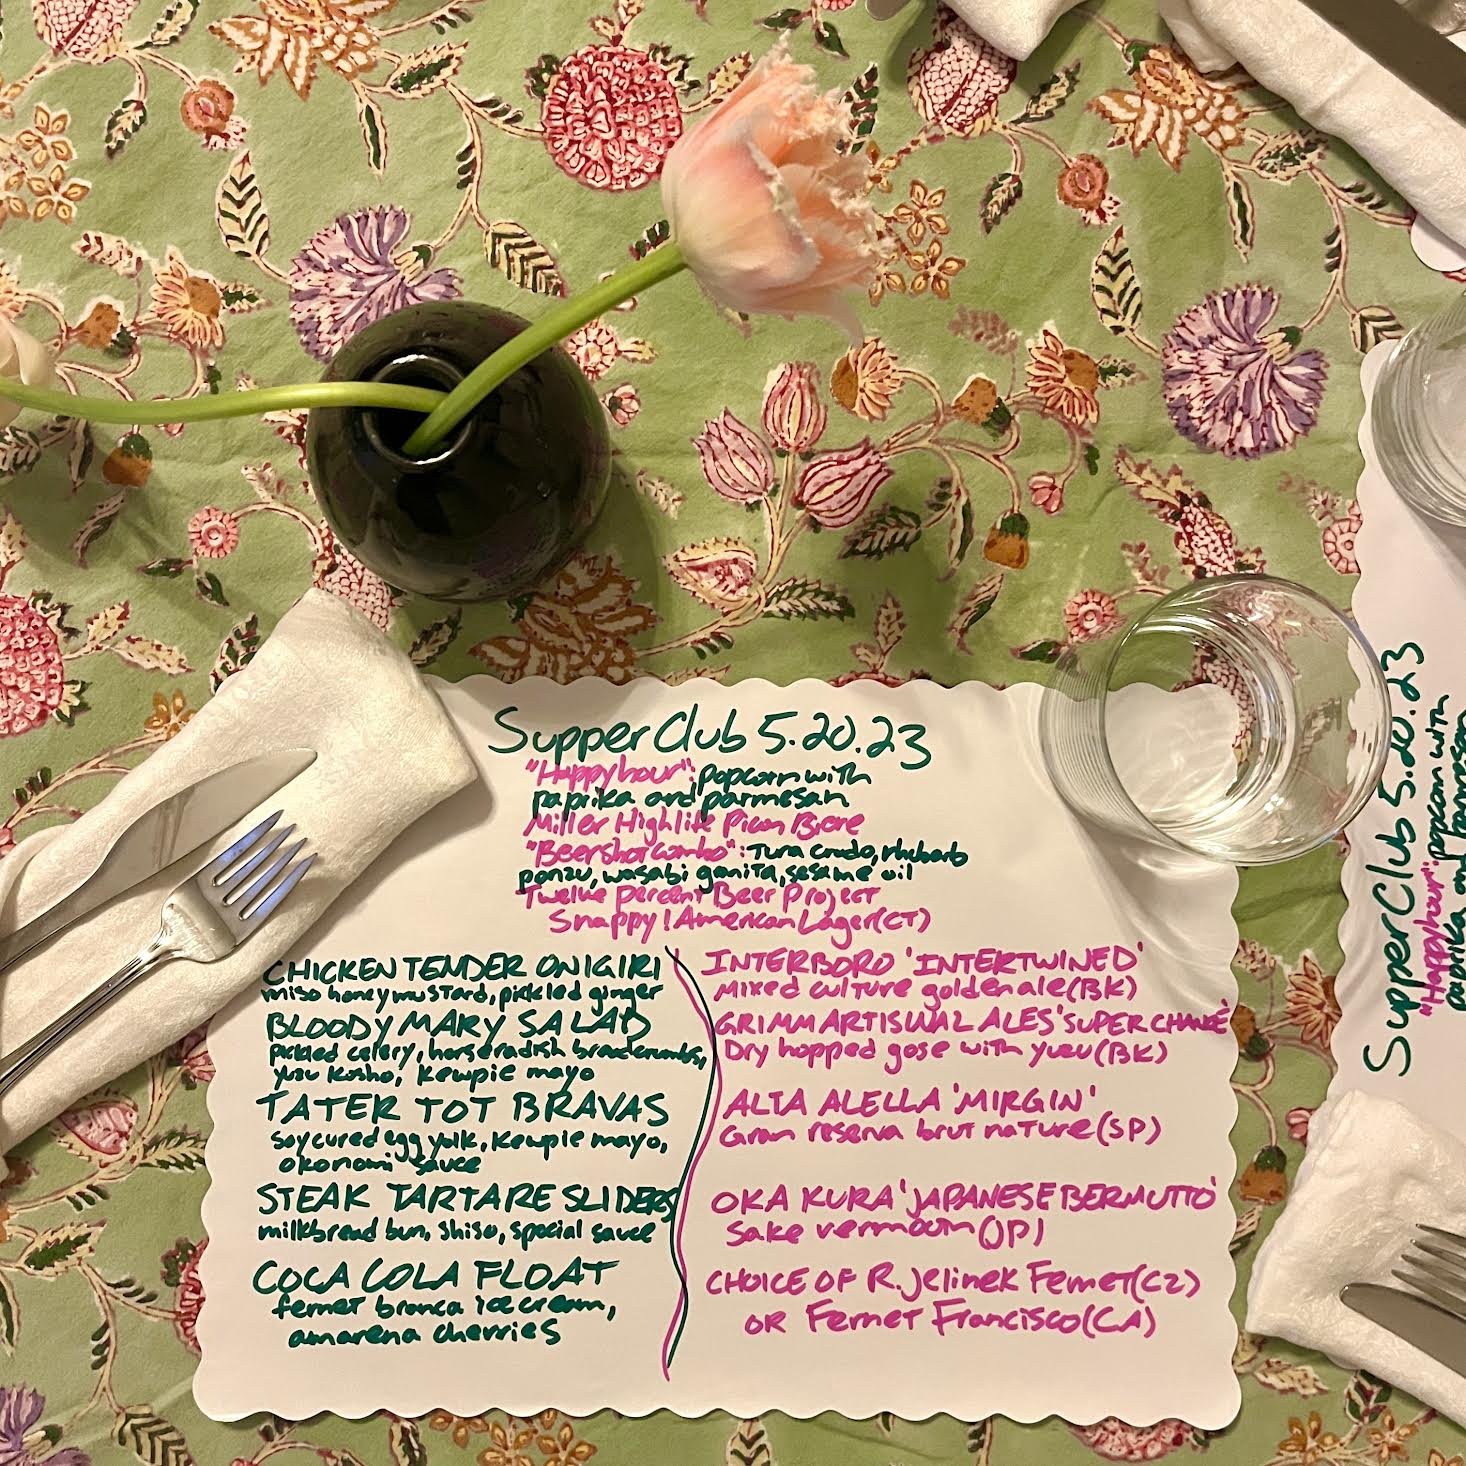 Supper Club 5.20.23
"Happy hour": popcorn with
paprika and parmesan
Miller Highlife Picon Biere
"Beershot combo": Tuna crudo, rhubarb
ponzu, wasabi granita, sesame oil
Twelve percent Beer Project
Snappy! American Lager (CT)
CHICKEN TENDER ONIGIRI
miso honey mustard, pickled ginger
BLOODY MARY SALAD
pickled celery, horseradish breadcrumbs,
yuzu kosho, kewpie mayo
TATER TOT BRAVAS
soy cured egg yolk, kewpie mayo,
okonomi sauce
STEAK TARTARE SLIDERS
milkbread bun, shiso, special sauce
COCA COLA FLOAT
fernet branca ice cream,
amarena cherries
INTERBORO 'INTERTWINED'
Mixed culture golden ale (BK)
GRIMM ARTISANAL ALES 'SUPER CHANGE'
Dry hopped gose with yuzu (BK)
ALTA ALELLA 'MIRGIN'
Gran reserva brut nature (SP)
OKA KURA 'JAPANESE BERMUTTO'
Sake vermouth (JP)
CHOICE OF R. Jelinek Fernet (CZ)
OR Fernet Francisco (CA)
Supper Club 5.20.23
"Happy hour": popcorn with
paprika and parmesan